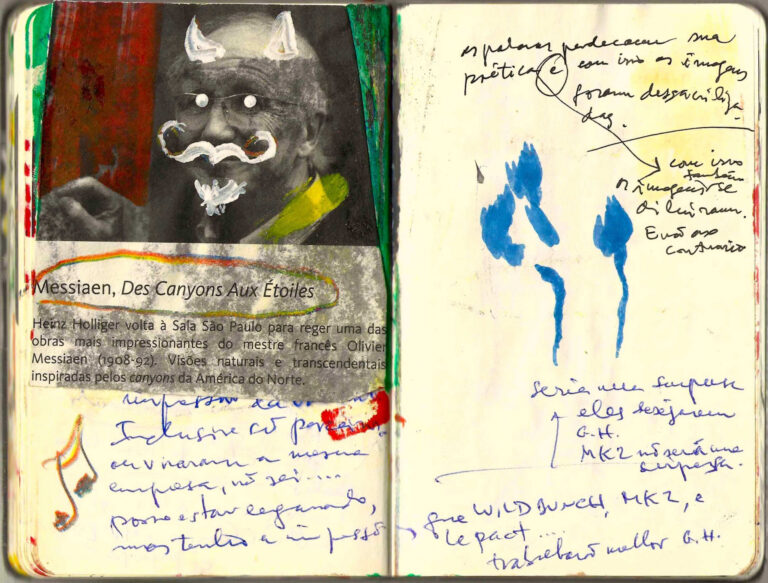 Messiaen, Des Canyons Aux Étoiles
Heinz Holliger volta à Sala São Paulo para reger uma das
obras mais impressionantes do mestre francês Olivier
Messiaen (1908-92). Visões naturais e transcendentais
inspiradas pelos canyons da América do Norte.
Inclusive
ou viraram a mesma
empresa, não sei....
posso estar enganado,
mas tenho a impressão
as palavras perderam sua
poética e com isso as imagens
foram
das.
com isso
também
as imagens se
diluíram.
E não ao
contrário
seria uma surpresa
eles
G.H.
MK2 não será uma
surpresa.
que WILD BUNCH, MK2, e
Le pact ...
melhor G.H.